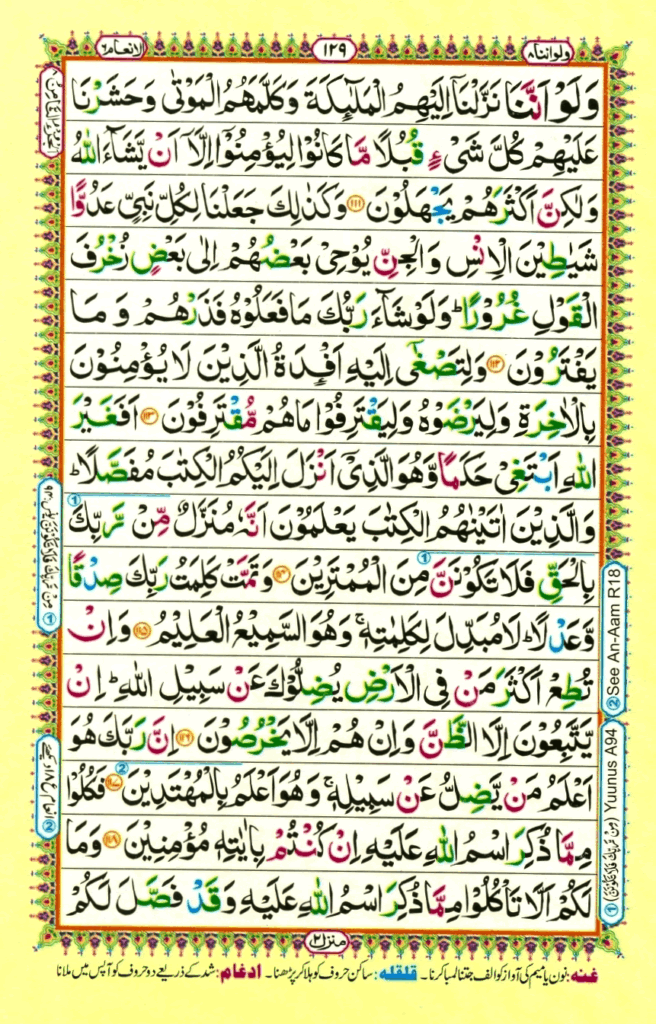 ولواننا۸
۱۲۹
الانعام۶
وَلَوْ اَنَّنَا نَزَّلْنَاۤ اِلَیْهِمُ الْمَلٰٓئِكَةَ وَكَلَّمَهُمُ الْمَوْتٰی وَحَشَرْنَا
عَلَیْهِمْ كُلَّ شَیْءٍ قُبُلًا مَّا كَانُوْا لِیُؤْمِنُوْۤا اِلَّاۤ اَنْ یَّشَآءَ اللّٰهُ
وَلٰكِنَّ اَكْثَرَهُمْ یَجْهَلُوْنَ ۝۱۱۱ وَكَذٰلِكَ جَعَلْنَا لِكُلِّ نَبِیٍّ عَدُوًّا
شَیٰطِیْنَ الْاِنْسِ وَالْجِنِّ یُوْحِیْ بَعْضُهُمْ اِلٰی بَعْضٍ زُخْرُفَ
الْقَوْلِ غُرُوْرًا ؕ وَلَوْ شَآءَ رَبُّكَ مَا فَعَلُوْهُ فَذَرْهُمْ وَمَا
یَفْتَرُوْنَ ۝۱۱۲ وَلِتَصْغٰۤی اِلَیْهِ اَفْـِٕدَةُ الَّذِیْنَ لَا یُؤْمِنُوْنَ
بِالْاٰخِرَةِ وَلِیَرْضَوْهُ وَلِیَقْتَرِفُوْا مَا هُمْ مُّقْتَرِفُوْنَ ۝۱۱۳ اَفَغَیْرَ
اللّٰهِ اَبْتَغِیْ حَكَمًا وَّهُوَ الَّذِیْۤ اَنْزَلَ اِلَیْكُمُ الْكِتٰبَ مُفَصَّلًا ؕ
وَالَّذِیْنَ اٰتَیْنٰهُمُ الْكِتٰبَ یَعْلَمُوْنَ اَنَّهٗ مُنَزَّلٌ مِّنْ رَّبِّكَ
بِالْحَقِّ فَلَا تَكُوْنَنَّ مِنَ الْمُمْتَرِیْنَ ۝۱۱۴ وَتَمَّتْ كَلِمَتُ رَبِّكَ صِدْقًا
وَّعَدْلًا ؕ لَا مُبَدِّلَ لِكَلِمٰتِهٖ ۚ وَهُوَ السَّمِیْعُ الْعَلِیْمُ ۝۱۱۵ وَاِنْ
تُطِعْ اَكْثَرَ مَنْ فِی الْاَرْضِ یُضِلُّوْكَ عَنْ سَبِیْلِ اللّٰهِ ؕ اِنْ
یَّتَّبِعُوْنَ اِلَّا الظَّنَّ وَاِنْ هُمْ اِلَّا یَخْرُصُوْنَ ۝۱۱۶ اِنَّ رَبَّكَ هُوَ
اَعْلَمُ مَنْ یَّضِلُّ عَنْ سَبِیْلِهٖ ۚ وَهُوَ اَعْلَمُ بِالْمُهْتَدِیْنَ ۝۱۱۷ فَكُلُوْا
مِمَّا ذُكِرَ اسْمُ اللّٰهِ عَلَیْهِ اِنْ كُنْتُمْ بِاٰیٰتِهٖ مُؤْمِنِیْنَ ۝۱۱۸ وَمَا
لَكُمْ اَلَّا تَاْكُلُوْا مِمَّا ذُكِرَ اسْمُ اللّٰهِ عَلَیْهِ وَقَدْ فَصَّلَ لَكُمْ
② See An-Aam R18
① Yuunus A94
منزل۲
غنه: نون یا میم کی آواز کو الف جتنا لمبا کرنا۔ قلقله: ساکن حروف کو ہلا کر پڑھنا۔ ادغام: شد کے ذریعے دو حروف کو آپس میں ملانا